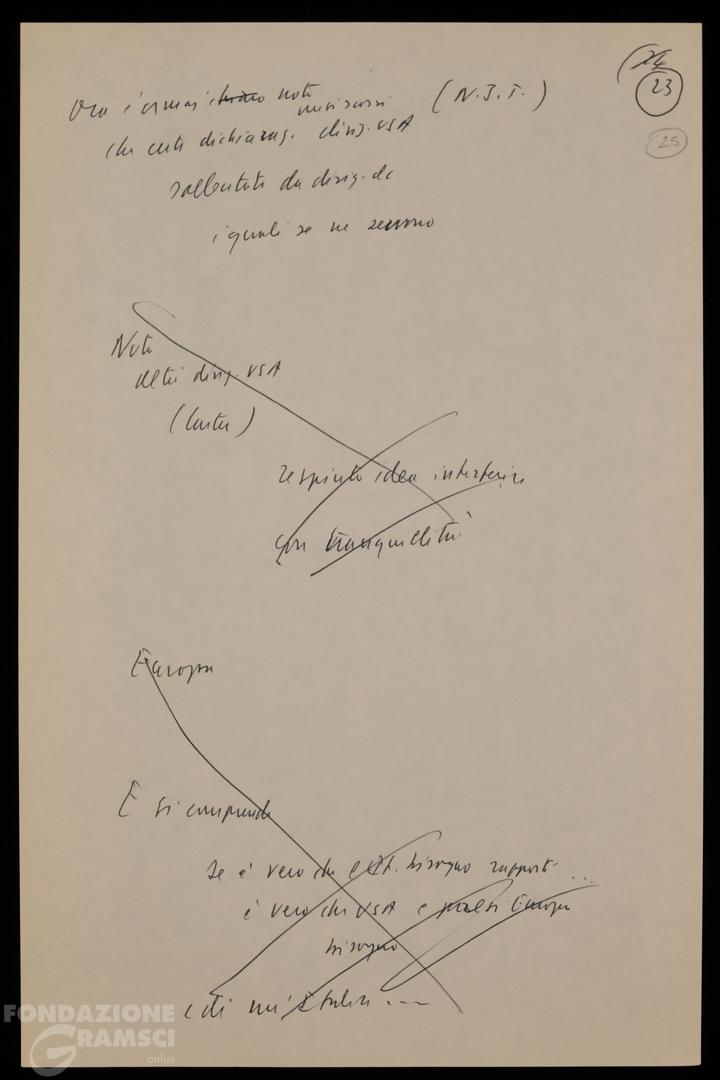 (24
23
25
Ora è ormai chiaro noto (N.Y.T.)
che certe dichiaraz. dirig. USA
sollecitate da dirig. dc
i quali se ne servono
Note
altri dirig. USA
(Carter)
respinto idea interferire
con tranquillità
Europa
E si comprende
se è vero che bisogno rapporti ...
è vero che USA e paesi Europa
bisogno
di un'Italia ...
FONDAZIONE
GRAMSCI
onlus